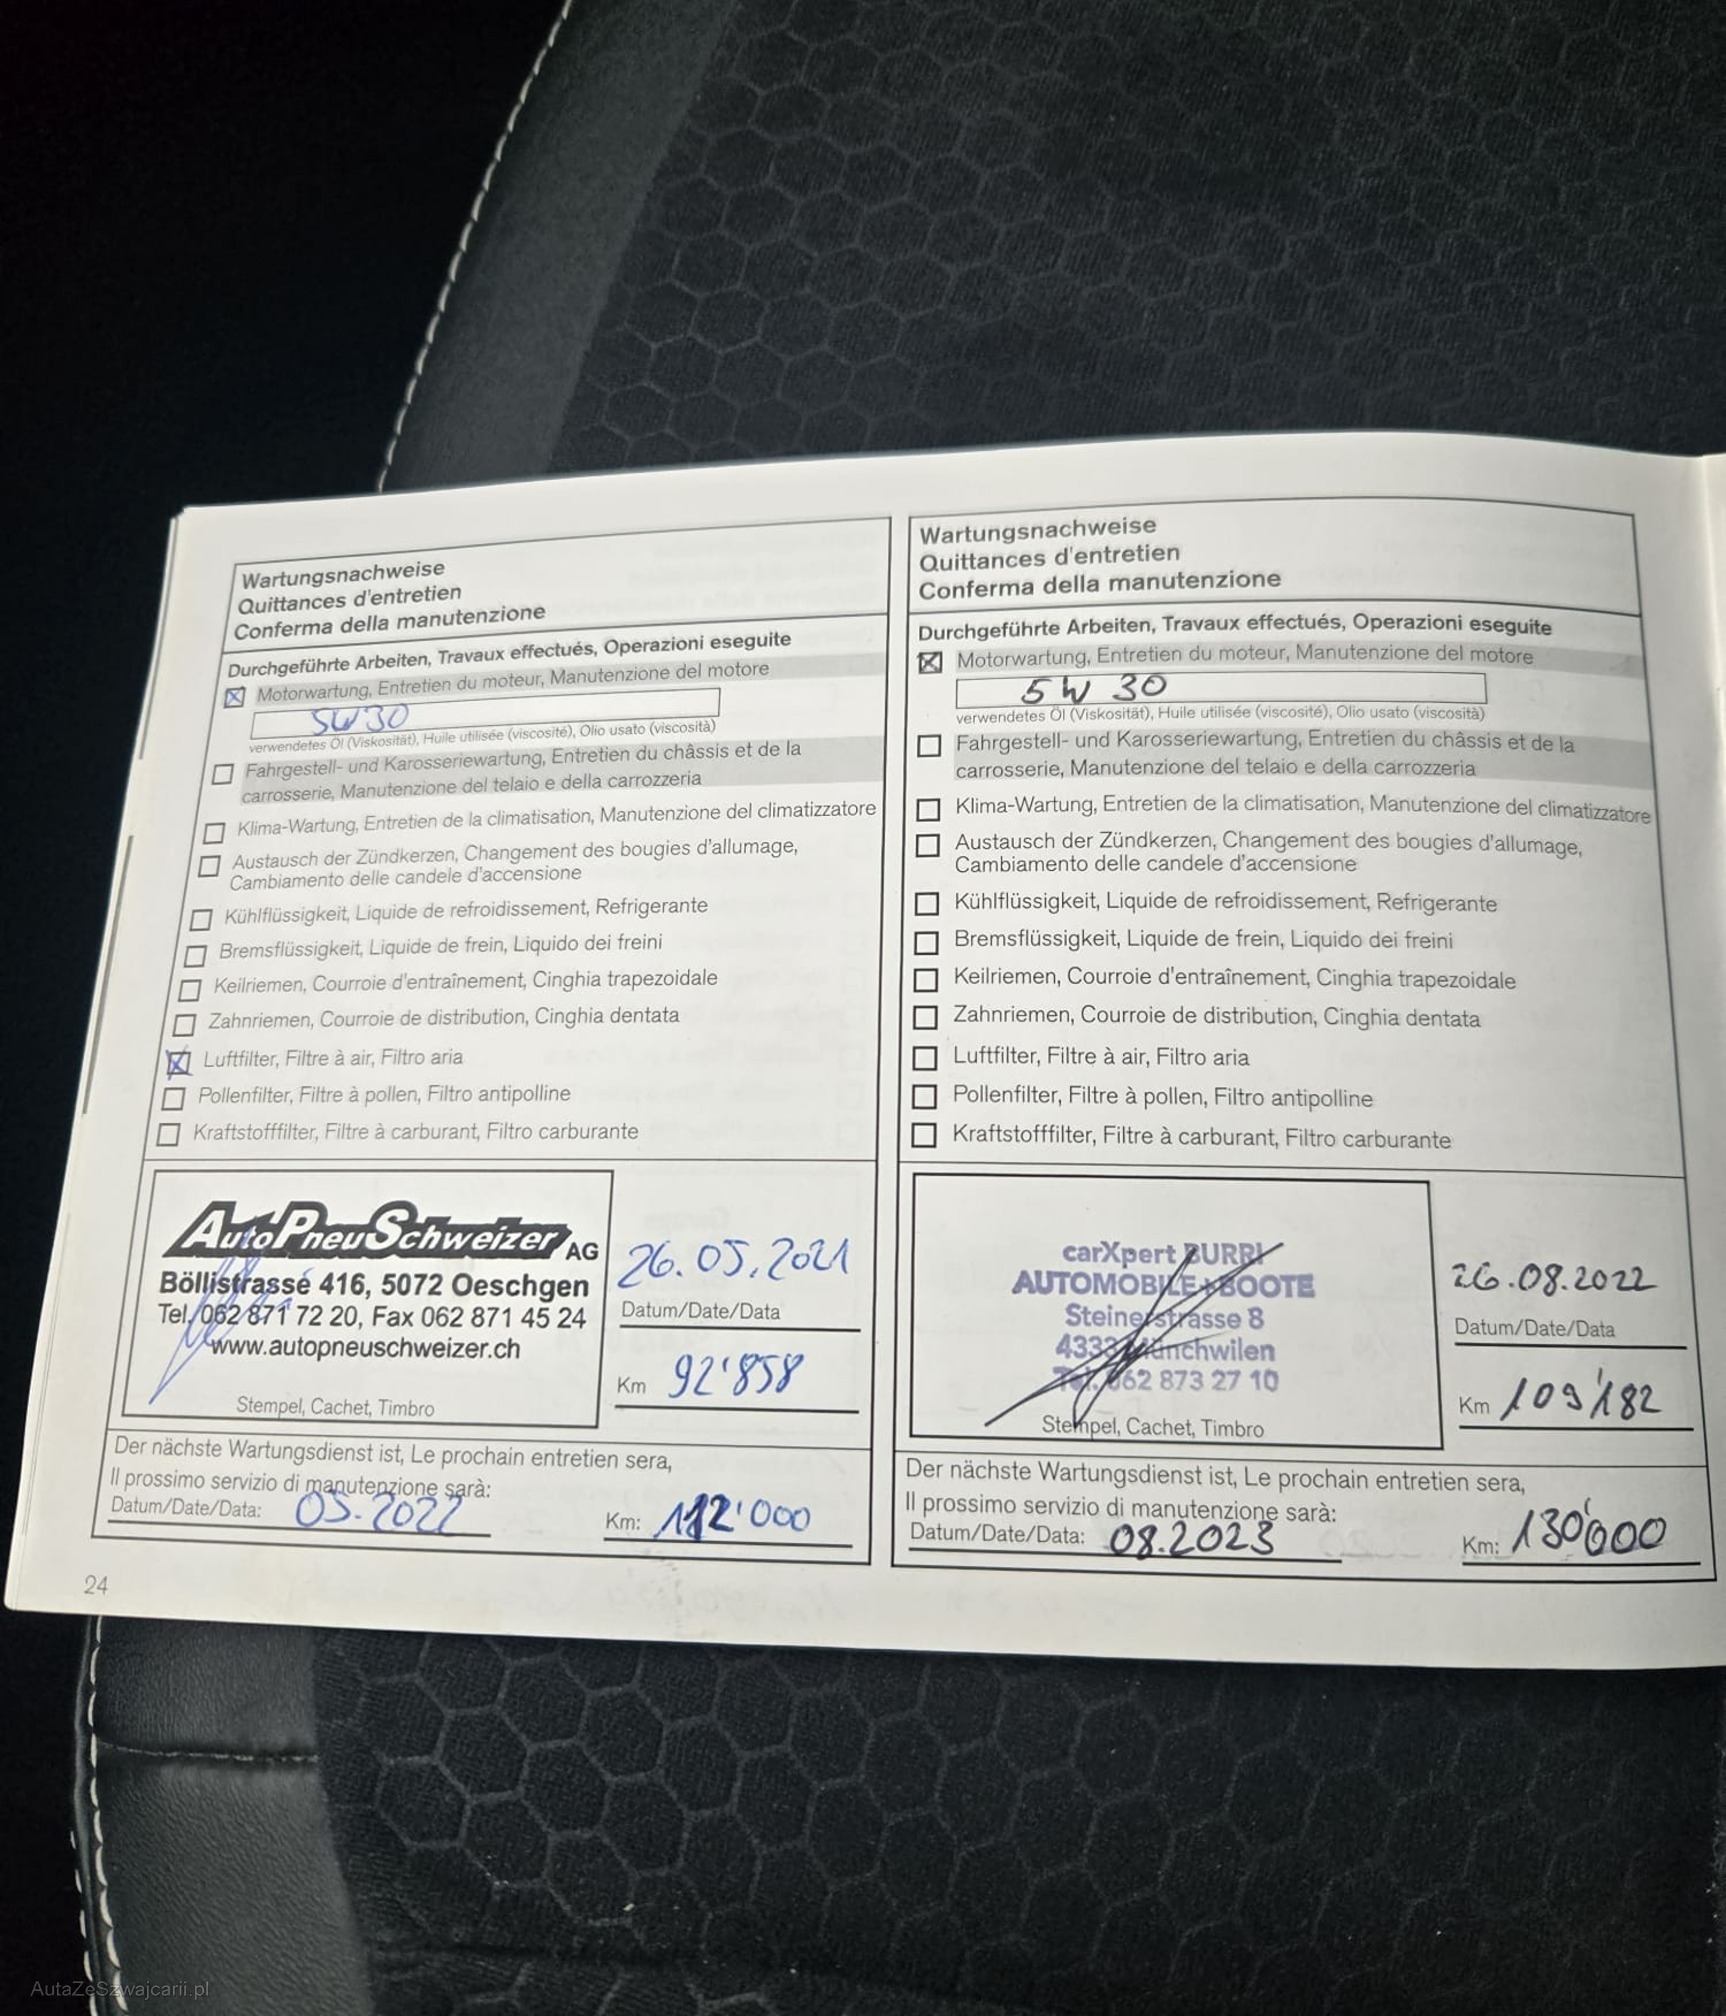 Wartungsnachweise
Quittances d'entretien
Conferma della manutenzione
Durchgeführte Arbeiten, Travaux effectués, Operazioni eseguite
Motorwartung, Entretien du moteur, Manutenzione del motore
5W30
verwendetes Öl (Viskosität), Huile utilisée (viscosité), Olio usato (viscosità)
Fahrgestell- und Karosseriewartung, Entretien du châssis et de la
carrosserie, Manutenzione del telaio e della carrozzeria
Klima-Wartung, Entretien de la climatisation, Manutenzione del climatizzatore
Austausch der Zündkerzen, Changement des bougies d'allumage,
Cambiamento delle candele d'accensione
Kühlflüssigkeit, Liquide de refroidissement, Refrigerante
Bremsflüssigkeit, Liquide de frein, Liquido dei freini
Keilriemen, Courroie d'entraînement, Cinghia trapezoidale
Zahnriemen, Courroie de distribution, Cinghia dentata
Luftfilter, Filtre à air, Filtro aria
Pollenfilter, Filtre à pollen, Filtro antipolline
Kraftstofffilter, Filtre à carburant, Filtro carburante
AutoPneuSchweizer AG
Böllistrasse 416, 5072 Oeschgen
Tel. 062 871 72 20, Fax 062 871 45 24
www.autopneuschweizer.ch
Stempel, Cachet, Timbro
26.05.2021
Datum/Date/Data
Km 92'858
Der nächste Wartungsdienst ist, Le prochain entretien sera,
Il prossimo servizio di manutenzione sarà:
Datum/Date/Data: 05.2022 Km: 112'000
24
Wartungsnachweise
Quittances d'entretien
Conferma della manutenzione
Durchgeführte Arbeiten, Travaux effectués, Operazioni eseguite
Motorwartung, Entretien du moteur, Manutenzione del motore
5W 30
verwendetes Öl (Viskosität), Huile utilisée (viscosité), Olio usato (viscosità)
Fahrgestell- und Karosseriewartung, Entretien du châssis et de la
carrosserie, Manutenzione del telaio e della carrozzeria
Klima-Wartung, Entretien de la climatisation, Manutenzione del climatizzatore
Austausch der Zündkerzen, Changement des bougies d'allumage,
Cambiamento delle candele d'accensione
Kühlflüssigkeit, Liquide de refroidissement, Refrigerante
Bremsflüssigkeit, Liquide de frein, Liquido dei freini
Keilriemen, Courroie d'entraînement, Cinghia trapezoidale
Zahnriemen, Courroie de distribution, Cinghia dentata
Luftfilter, Filtre à air, Filtro aria
Pollenfilter, Filtre à pollen, Filtro antipolline
Kraftstofffilter, Filtre à carburant, Filtro carburante
carXpert BURRI
AUTOMOBILE+BOOTE
Steinerstrasse 8
4333 Münchwilen
Tel. 062 873 27 10
Stempel, Cachet, Timbro
26.08.2022
Datum/Date/Data
Km 109'182
Der nächste Wartungsdienst ist, Le prochain entretien sera,
Il prossimo servizio di manutenzione sarà:
Datum/Date/Data: 08.2023 Km: 130'000
AutaZeSzwajcarii.pl